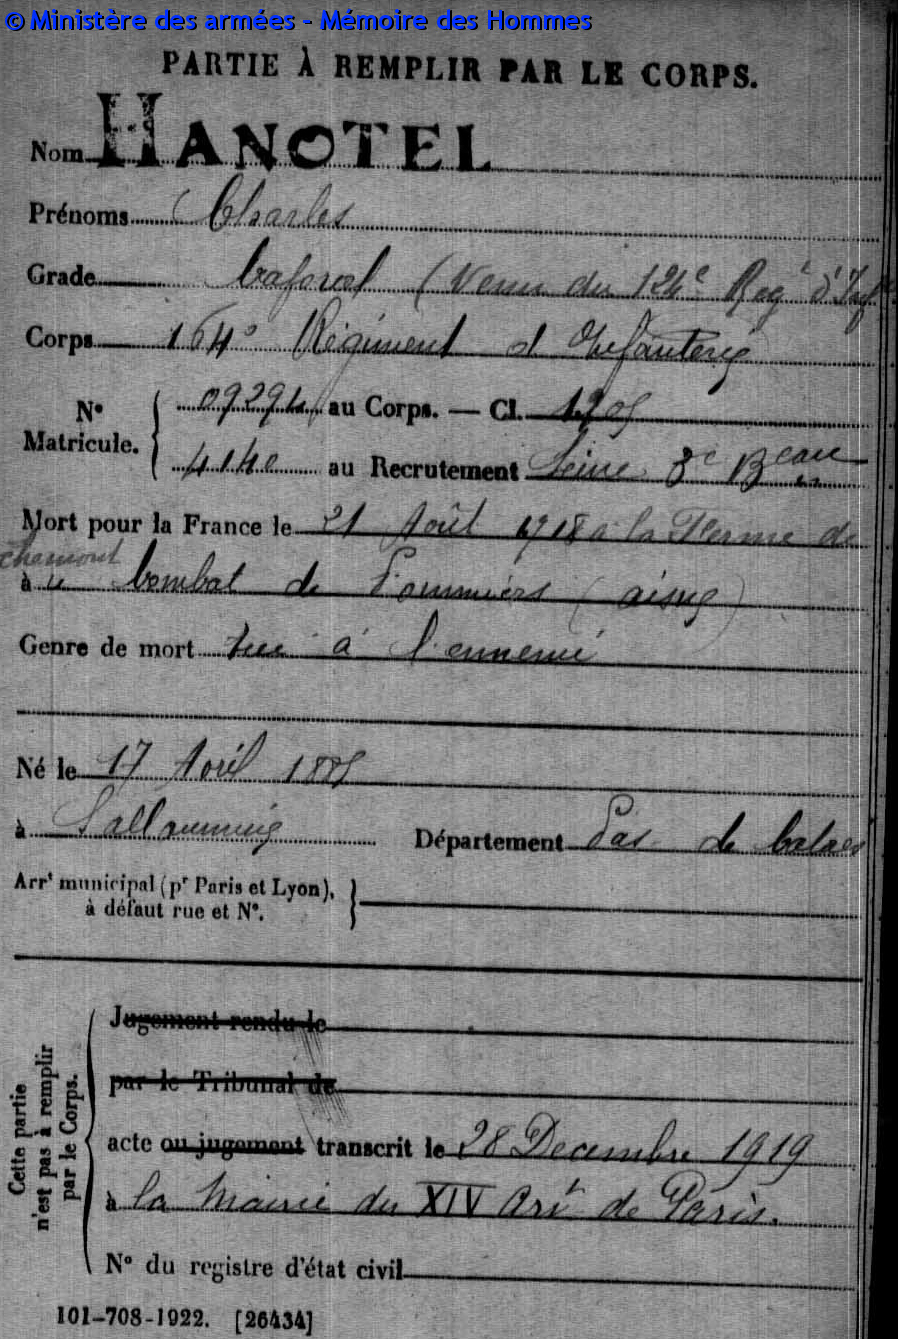 © Ministère des armées - Mémoire des Hommes
PARTIE À REMPLIR PAR LE CORPS.
Nom HANOTEL
Prénoms Charles
Grade Caporal (Venu du 124e Regt d'Infie
Corps 164e Régiment d'Infanterie
N° Matricule. 09294 au Corps. — Cl. 1905
4140 au Recrutement Seine 3e Beau
Mort pour la France le 21 Août 1918 à la Ferme de
chemont
à u Combat de Pommiers (Aisne)
Genre de mort tué à l'ennemi
Né le 17 Avril 1885
à Sallaumines Département Pas de Calais
Arrt municipal (pr Paris et Lyon),
à défaut rue et N°.
Cette partie
n'est pas à remplir
par le Corps.
Jugement rendu le
par le Tribunal de
acte ou jugement transcrit le 28 Decembre 1919
à la Mairie du XIV Arrt de Paris.
N° du registre d'état civil
101-708-1922. [26434]